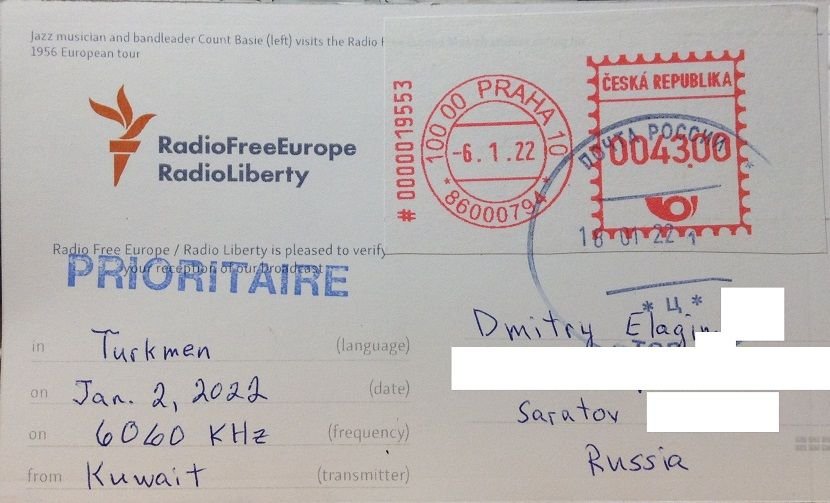 Jazz musician and bandleader Count Basie (left) visits the Radio
1956 European tour
RadioFreeEurope
RadioLiberty
# 0000019553
100 00 PRAHA 10
-6.1.22
* 86000794 *
ČESKÁ REPUBLIKA
004300
ПОЧТА РОССИИ
18 01 22 1
* Ц *
Radio Free Europe / Radio Liberty is pleased to verify
your reception of our broadcast
PRIORITAIRE
in Turkmen (language)
on Jan. 2, 2022 (date)
on 6060 KHz (frequency)
from Kuwait (transmitter)
Dmitry Elagin
Saratov
Russia